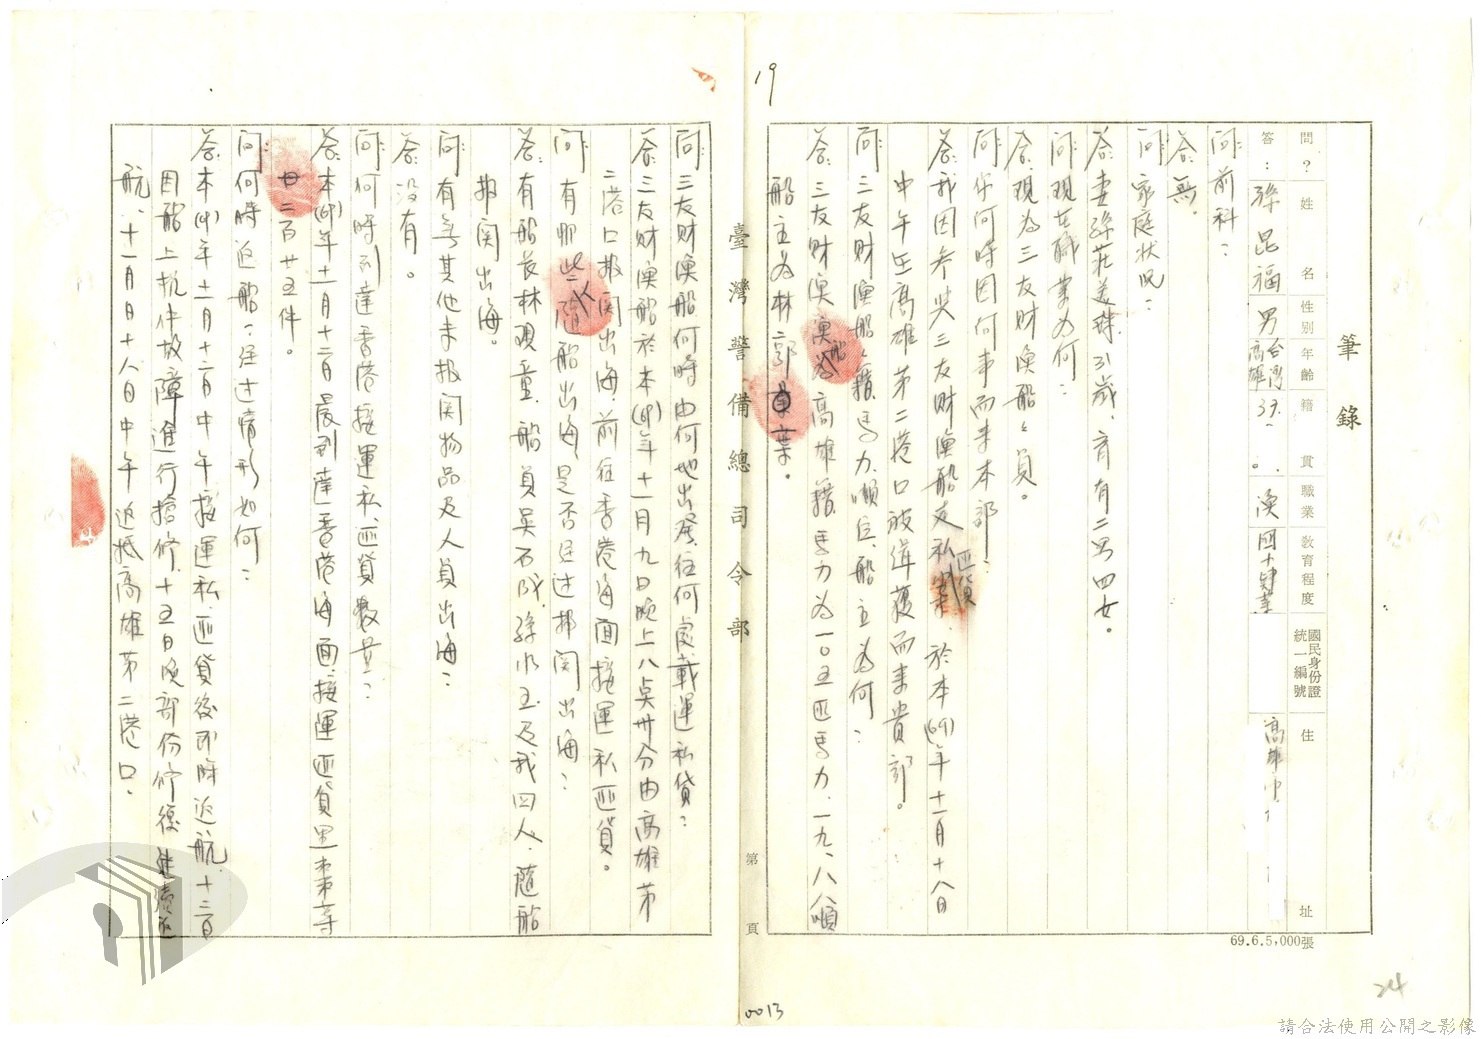 19
筆錄
問？姓名 性別 年齡 籍貫 職業 教育程度 國民身份證統一編號 住址
答：孫昆福 男 台灣高雄 39. 漁 國小肄業 高雄市
問：前科：
答：無。
問：家庭狀況：
答：妻孫莊美珠31歲，育有二男四女。
問：現在職業為何：
答：現為三友財漁船船員。
問：你何時因何事而來本部：
答：我因參與三友財漁船走私匪貨案，於本(69)年十一月十八日
中午在高雄第二港口被緝獲而來貴部。
問：三友財漁船船籍、馬力、噸位、船主為何：
答：三友財漁船為高雄籍，馬力為一0五匹馬力，一九.八八噸
船主為林郭葉。
臺灣警備總司令部
第 頁
69.6.5,000張
問：三友財漁船何時由何地出發，往何處載運私貨：
答：三友財漁船於本(69)年十一月九日晚上八點卅分由高雄第
二港口報關出海，前往香港海面接運私匪貨。
問：有那些人隨船出海，是否經過報關出海：
答：有船長林現童、船員吳石成、孫水玉及我四人，隨船
報關出海。
問：有無其他未報關物品及人員出海：
答：沒有。
問：何時到達香港接運私、匪貨數量：
答：本(69)年十一月十二日晨到達香港海面，接運匪貨黑棗等
二百廿五件。
問：何時返船：經過情形如何：
答：本(69)年十一月十二日中午接運私、匪貨後即時返航，十三日
因船上機件故障進行搶修，十五日晚部份修復繼續返
航，十一月十八日中午返抵高雄第二港口，
0013
24
請合法使用公開之影像